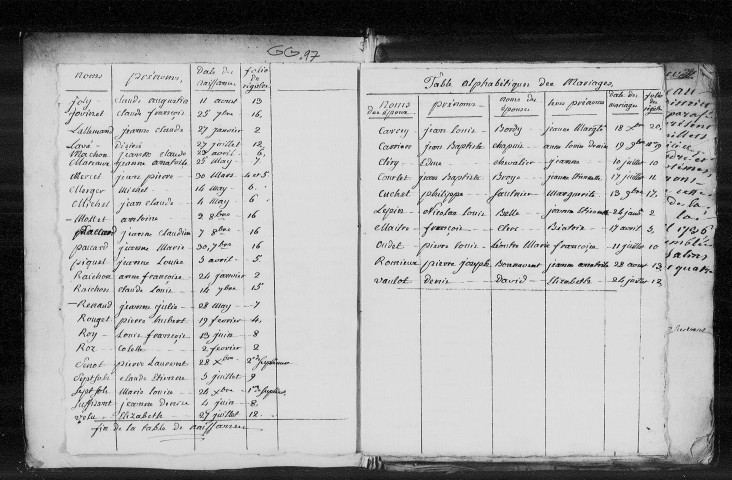 GG. 97
noms prénoms Date des naissances folio du registre
Joly claude augustin 11 aoust 13
Jovinet claude françois 25 7bre 16
Lallemand jeanne claude 27 janvier 2
Lavé Désiré 27 juillet 12
Machon jeanne claude 23 avril 6
Mareaux jeanne anatoille 25 May 7
Mercet jean pierre 30 Mars 4 et 5
Merger Michel 14 may 6
Michel jean claude 4 may 6
Mollet antoine 2 8bre 16
jeanne claudine 7 8bre 16
pacard jeanne Marie 30 7bre 16
piquet jeanne Louise 3 avril 5
Raichon anne françoise 24 janvier 2
Raichon claude Louis 14 7bre 15
Renaud jeanne julie 28 May 7
Rouget pierre hubert 19 fevrier 4
Roy Louis françois 13 juin 8
Roz Colette 2 fevrier 2
Senot pierre Laurent 28 Xbre
Septsols claude Etienne 5 juillet 9
Septsols Marie Louise 24 Xbre
Suffisant jeanne denise 4 juin 8
velu Elizabeth 27 juillet 12
fin de la table de naissances
Table alphabétiques des Mariages
Noms des époux prénoms noms des épouses leurs prénoms date des mariages folio du registre
Carrey jean Louis Bordy jeanne Margte 18 Xbre 20
Carriere jean Baptiste chapuis anne Louise Denise 9
Cliry Edme chevalier jeanne 10 juillet 10
Courlet jean Baptiste Broye jeanne Pierrette 17 juillet 11
Cuchet philippe faulnier Marguerite 13 9bre 17
Lepin Nicolas Louis Belle jeanne Etiennette 26 janv 2
Maitre françois Clerc Béatrix 17 avril 3
Oudet pierre Louis Marie françoise 11 juillet 10
Romieux pierre joseph Bonnavent jeanne anatoile 28 aoust 13
vaulot denis David Elizabeth 24 juillet 12